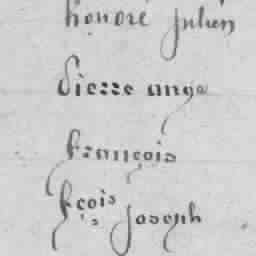 honoré Julien
Pierre ange
françois
fçois Joseph